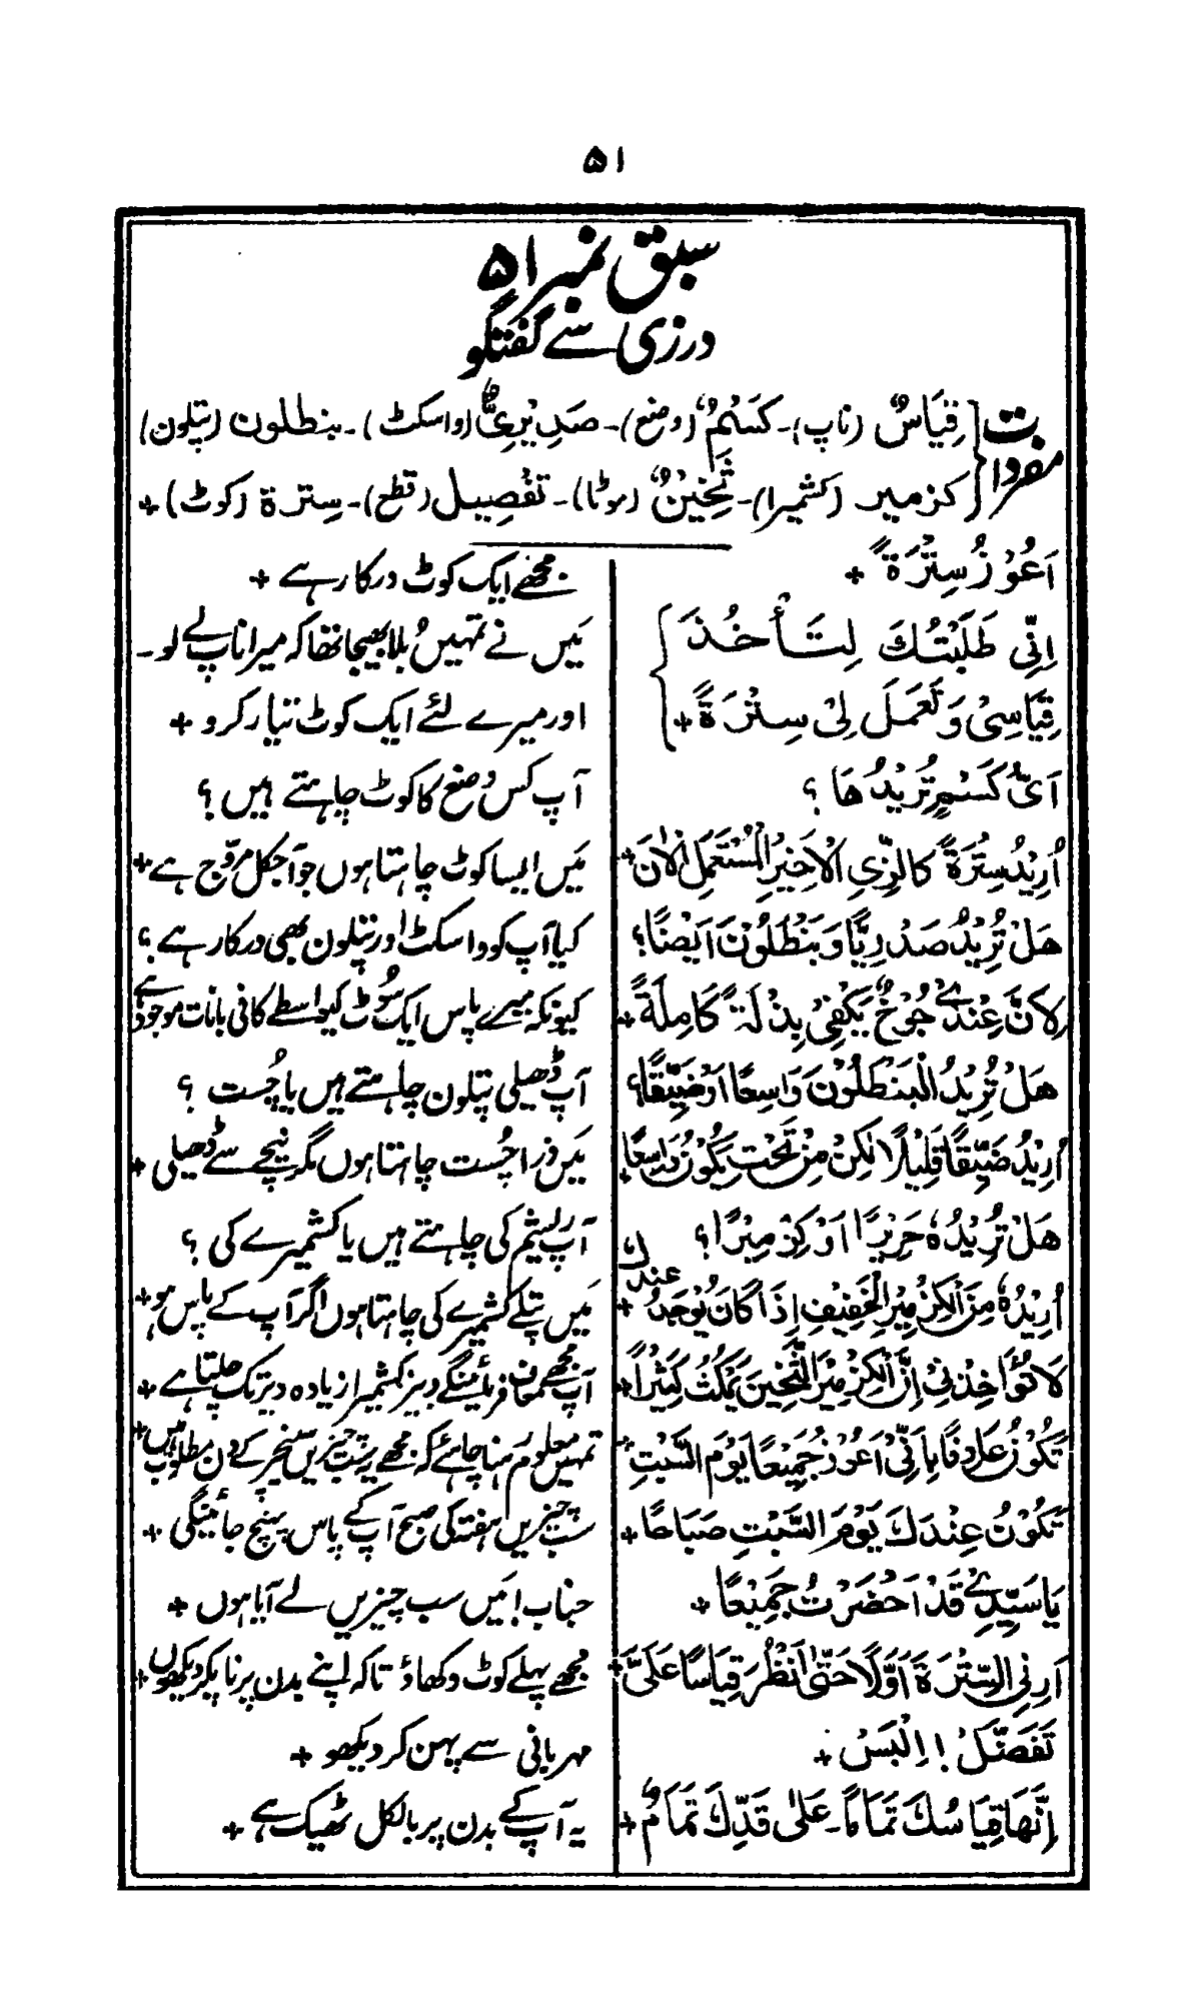 ۵۱
سبق نمبر ۵۱
درزی سے گفتگو
مفردات { قِیَاسٌ (ناپ)۔ کَسْمٌ (وضع)۔ صَدِیْرِیٌّ (واسکٹ)۔ بنطلون (پتلون)
کزمیر (کشمیرا)۔ ثَخِیْنٌ (موٹا)۔ تفصیل (قطع)۔ سِترة (کوٹ) +
اَعُوْزُ سِتْرَةً +
مجھے ایک کوٹ درکار ہے +
اِنِّی طَلَبْتُكَ لِتَأْخُذَ
مَیں نے تمہیں بلا بھیجا تھا کہ میرا ناپ لے لو۔
قِیَاسِیْ وَتَعْمَلَ لِیْ سِتْرَةً +
اور میرے لئے ایک کوٹ تیار کرو +
اَیَّ کَسْمٍ تُرِیْدُهَا ؟
آپ کس وضع کا کوٹ چاہتے ہیں ؟
اُرِیْدُ سِتْرَةً کَالزِّیِ الْاَخِیْرِ الْمُسْتَعْمَلِ الْاٰنَ +
مَیں ایسا کوٹ چاہتا ہوں جو آجکل مروّج ہے +
هَلْ تُرِیْدُ صَدْرِیًّا وَبَنْطَلُوْنَ اَیْضًا؟
کیا آپ کو واسکٹ اور پتلون بھی درکار ہے ؟
لِاَنَّ عِنْدِےْ جُوْخٌ یَکْفِیْ بِذْلَةً کَامِلَةً +
کیونکہ میرے پاس ایک سُوٹ کیواسطے کافی بانات موجود ہے
هَلْ تُرِیْدُ الْبَنْطَلُوْنَ وَاسِعًا اَوْ ضَیِّقًا؟
آپ ڈھیلی پتلون چاہتے ہیں یا چُست ؟
اُرِیْدُ ضَیِّقًا قَلِیْلًا لٰکِنْ مِنْ تَحْتِ یَکُوْنُ وَاسِعًا +
مَیں ذرا چُست چاہتا ہوں مگر نیچے سے ڈھیلی +
هَلْ تُرِیْدُهٗ حَرِیْرًا اَوْ کِزْمِیْرًا ؟
آپ ریشم کی چاہتے ہیں یا کشمیرے کی ؟
اُرِیْدُهٗ مِنَ الْکِزْمِیْرِ الْخَفِیْفِ اِذَا کَانَ یُوْجَدُ عِندك +
مَیں پتلے کشمیرے کی چاہتا ہوں اگر آپ کے پاس ہو +
لَا تُؤَاخِذْنِیْ اِنَّ الْکِزْمِیْرَ الثَّخِیْنَ یَمْکُثُ کَثِیْرًا +
آپ مجھے معاف فرمائینگے دبیز کشمیرا زیادہ دیر تک چلتا ہے +
تَکُوْنُ عَارِفًا بِاَنِّیْ اَعُوْزُ جَمِیْعًا یَوْمَ السَّبْتِ +
تمہیں معلوم ہنا چاہئے کہ مجھے یہ سب چیزیں سنیچر کے دن مطلوب ہیں +
تَکُوْنُ عِنْدَكَ یَوْمَ السَّبْتِ صَبَاحًا +
سب چیزیں ہفتہ کی صبح آپ کے پاس پہنچ جائینگی +
یَا سَیِّدِےْ قَدْ اَحْضَرْتُ جَمِیْعًا +
جناب! مَیں سب چیزیں لے آیا ہوں +
اَرِنِی السِّتْرَةَ اَوَّلًا حَتّٰی اَنْظُرَ قِیَاسًا عَلَیَّ +
مجھے پہلے کوٹ دکھاؤ تاکہ اپنے بدن پر ناپکر دیکھوں +
تَفَضَّلْ ! اِلْبَسْ +
مہربانی سے پہن کر دیکھو +
اِنَّهَا قِیَاسُكَ تَمَامًا۔ عَلٰی قَدِّكَ تَمَامٌ +
یہ آپ کے بدن پر بالکل ٹھیک ہے +